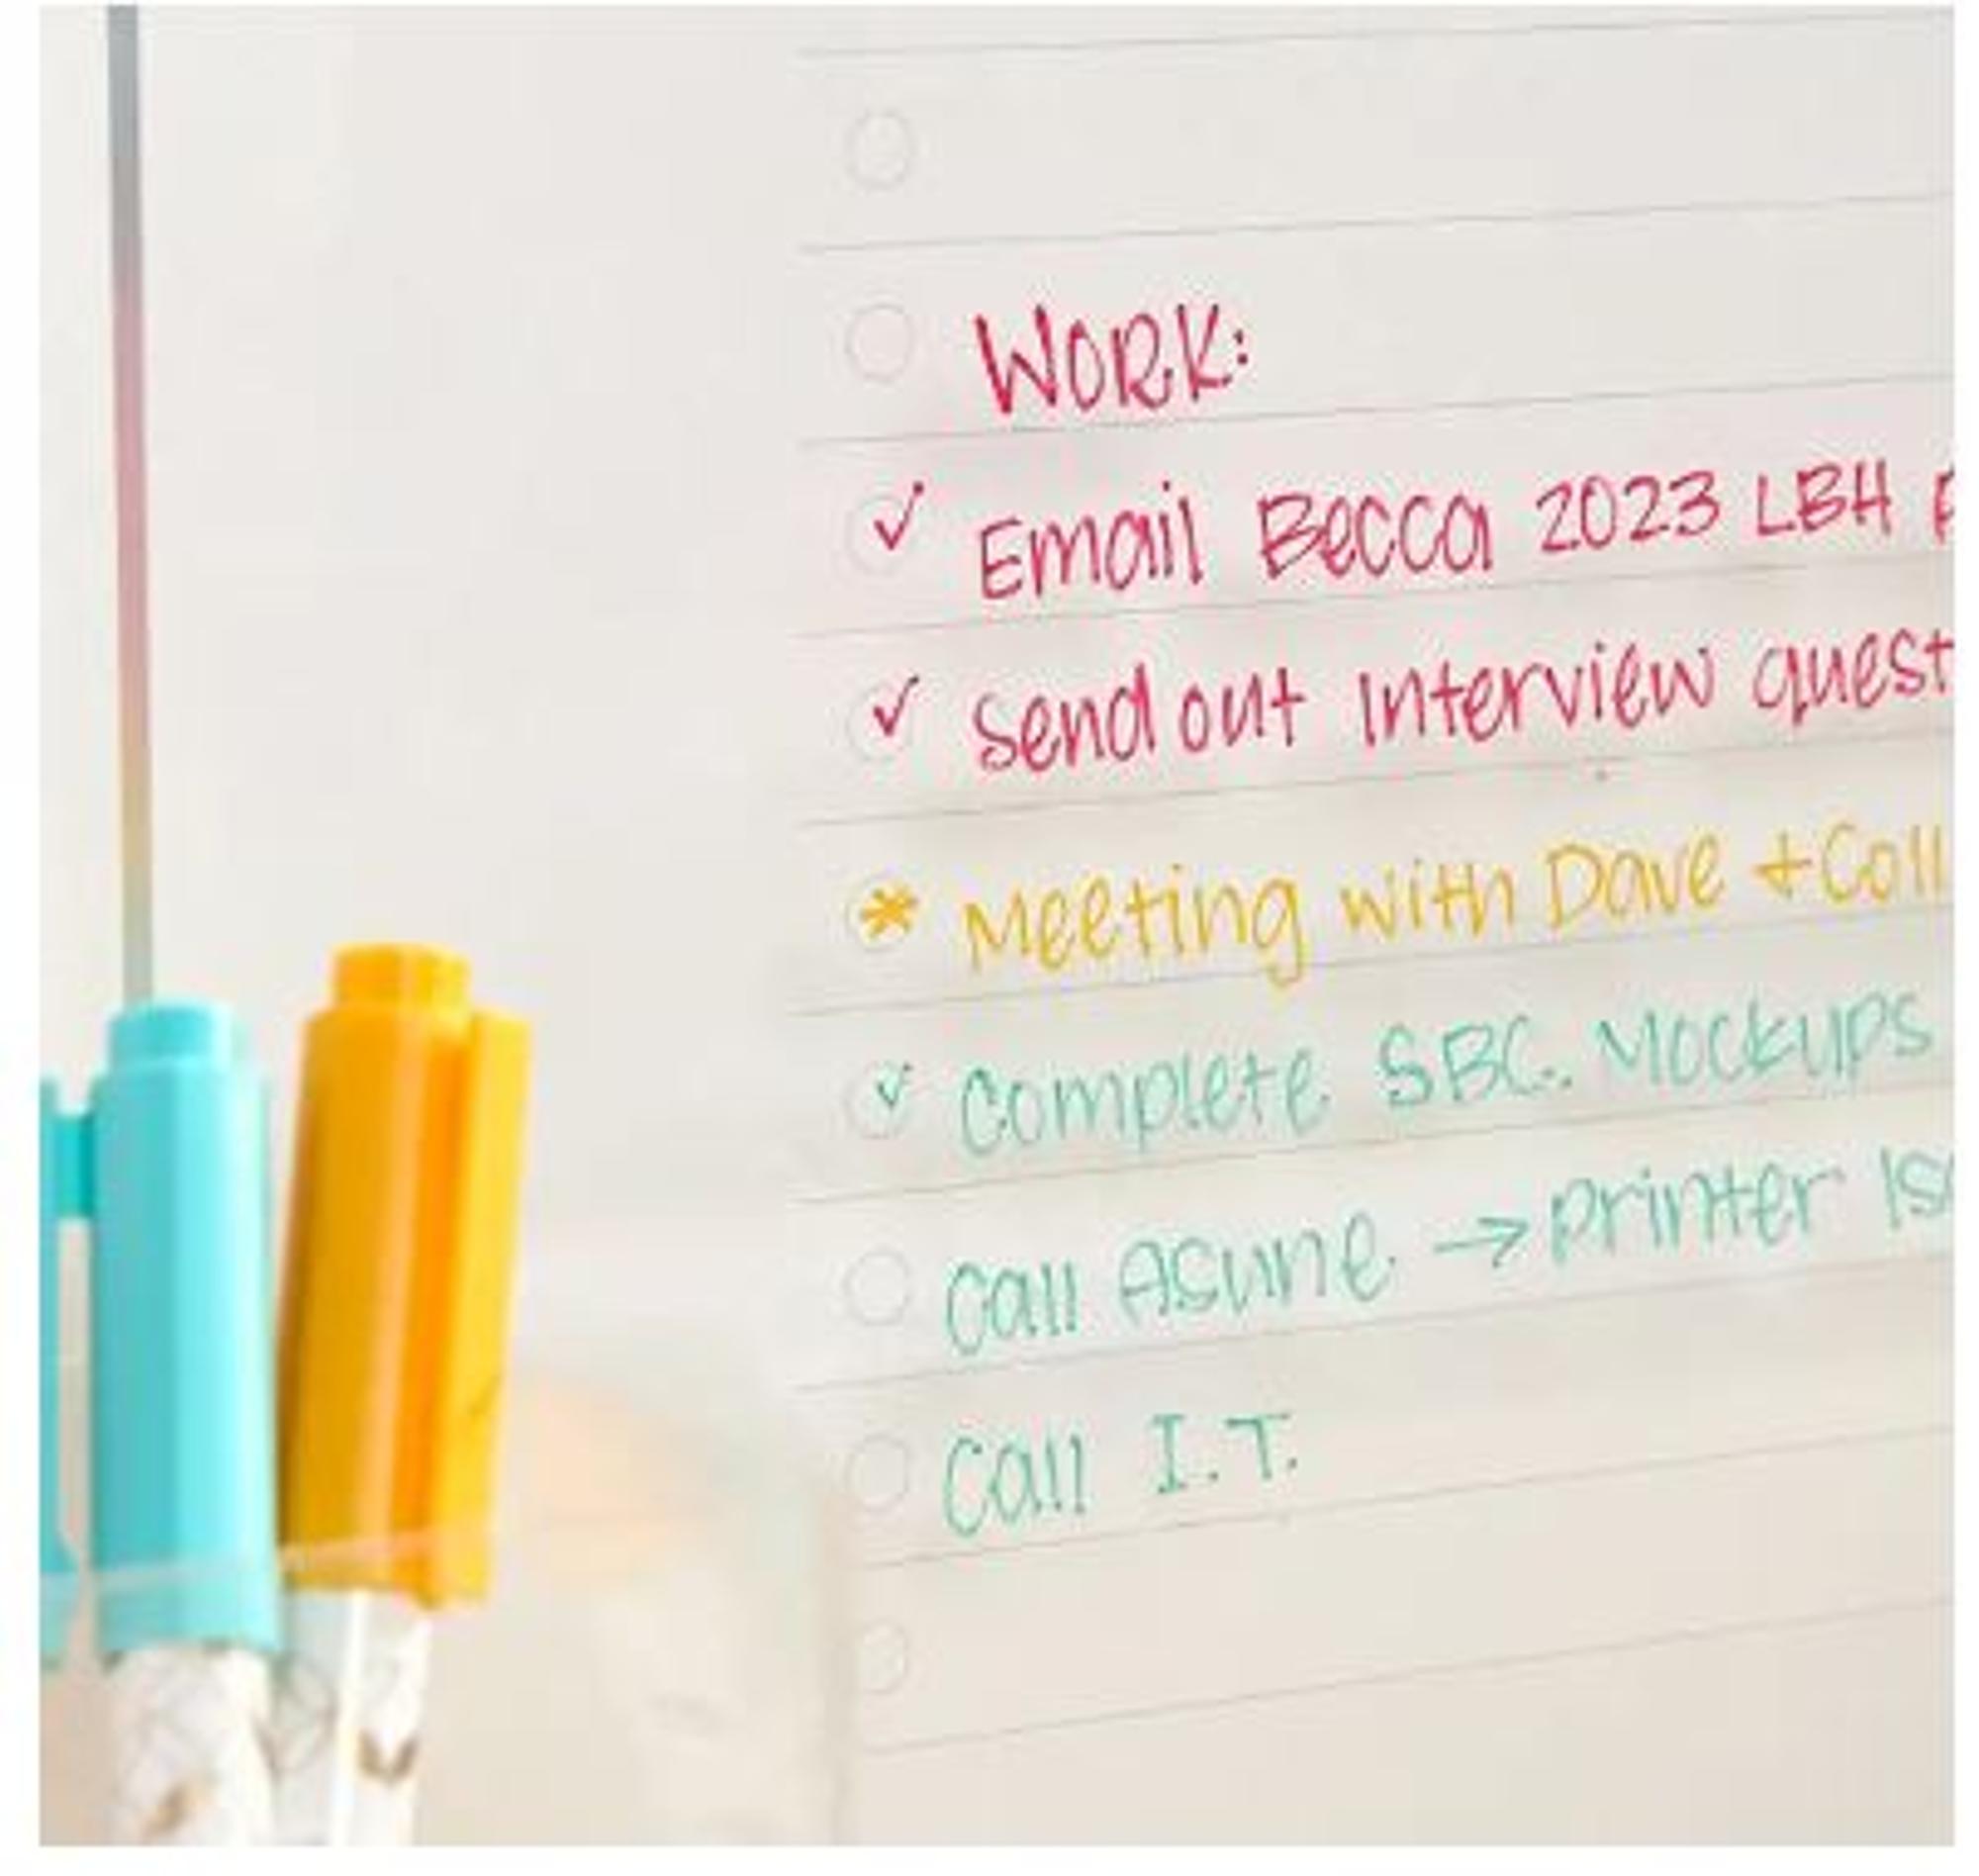 WORK:
✓ Email Becca 2023 LBH
✓ Send out Interview quest
* Meeting with Dave + Coll
✓ Complete SBC. Mockups
Call Asune → printer Iss
Call I.T.